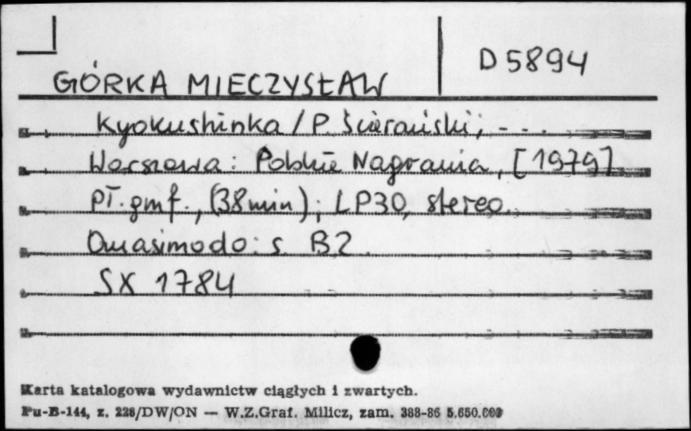 D 5894
GÓRKA MIECZYSŁAW
Kyokushinka / P. Ścierański; - ..
Warszawa: Polskie Nagrania, [1979]
Pł. gmf., (38 min); LP30, stereo.
Quasimodo: s. B2.
SX 1784
Karta katalogowa wydawnictw ciągłych i zwartych.
Pu-B-144, z. 228/DW/ON — W.Z.Graf. Milicz, zam. 388-86 5.650.000